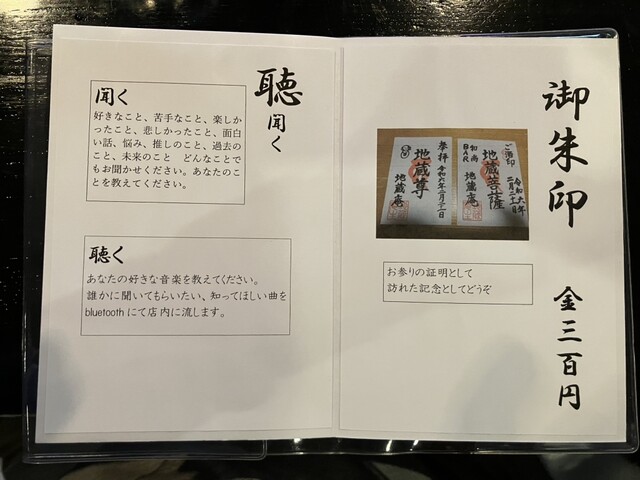 御朱印
金三百円
ご酒印
令和六年
二月二十一日
地蔵菩薩
和尚
BAR
地蔵庵
参拝
令和六年二月二十二日
地蔵尊
地蔵庵
お参りの証明として
訪れた記念としてどうぞ
聴
聞く
聞く
好きなこと、苦手なこと、楽しか
ったこと、悲しかったこと、面白
い話、悩み、推しのこと、過去の
こと、未来のこと　どんなことで
もお聞かせください。あなたのこ
とを教えてください。
聴く
あなたの好きな音楽を教えてください。
誰かに聞いてもらいたい、知ってほしい曲を
bluetoothにて店内に流します。